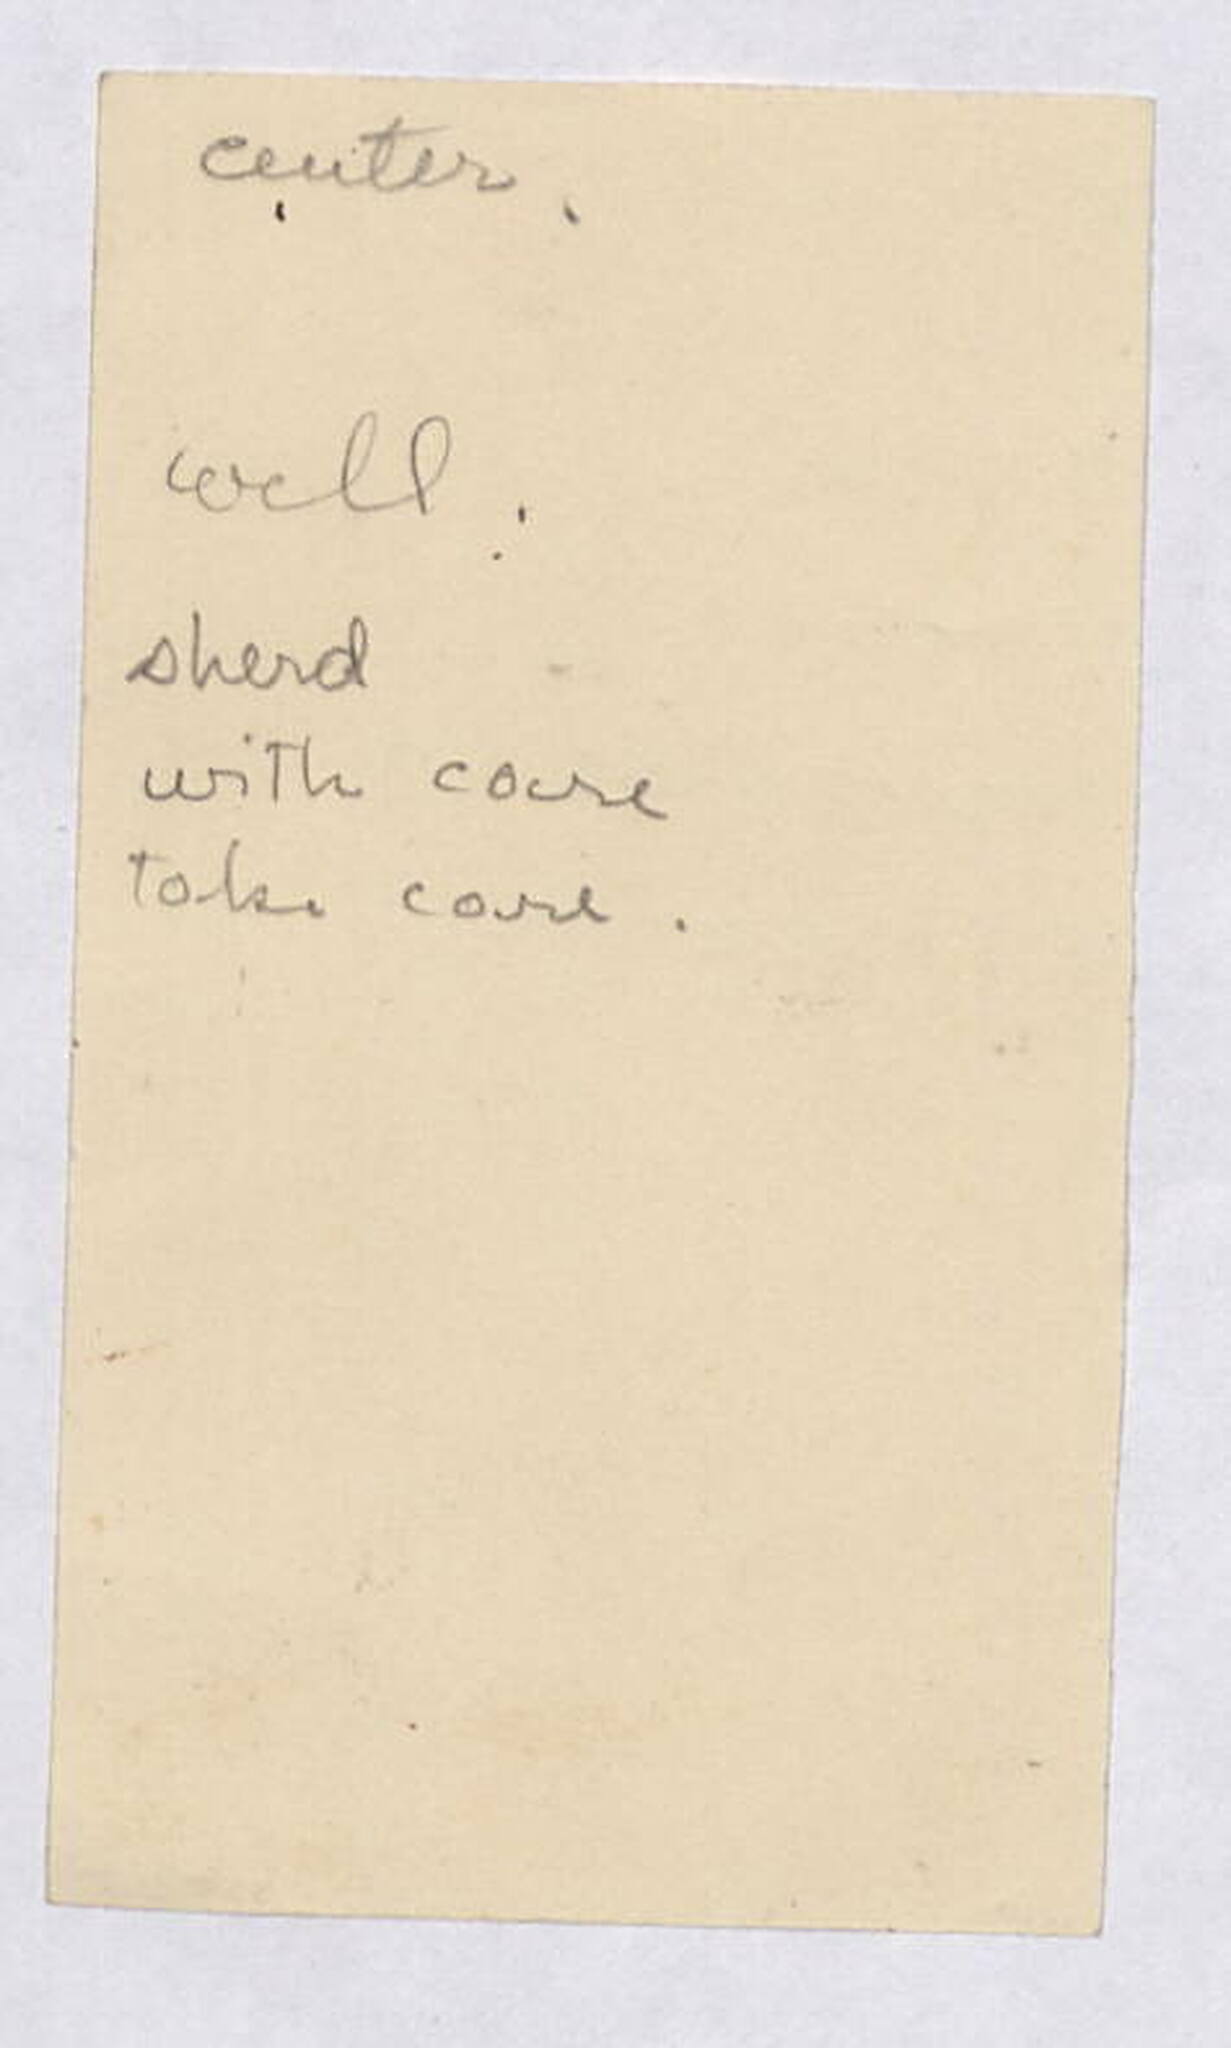 center.
well.
sherd
with care
take care.